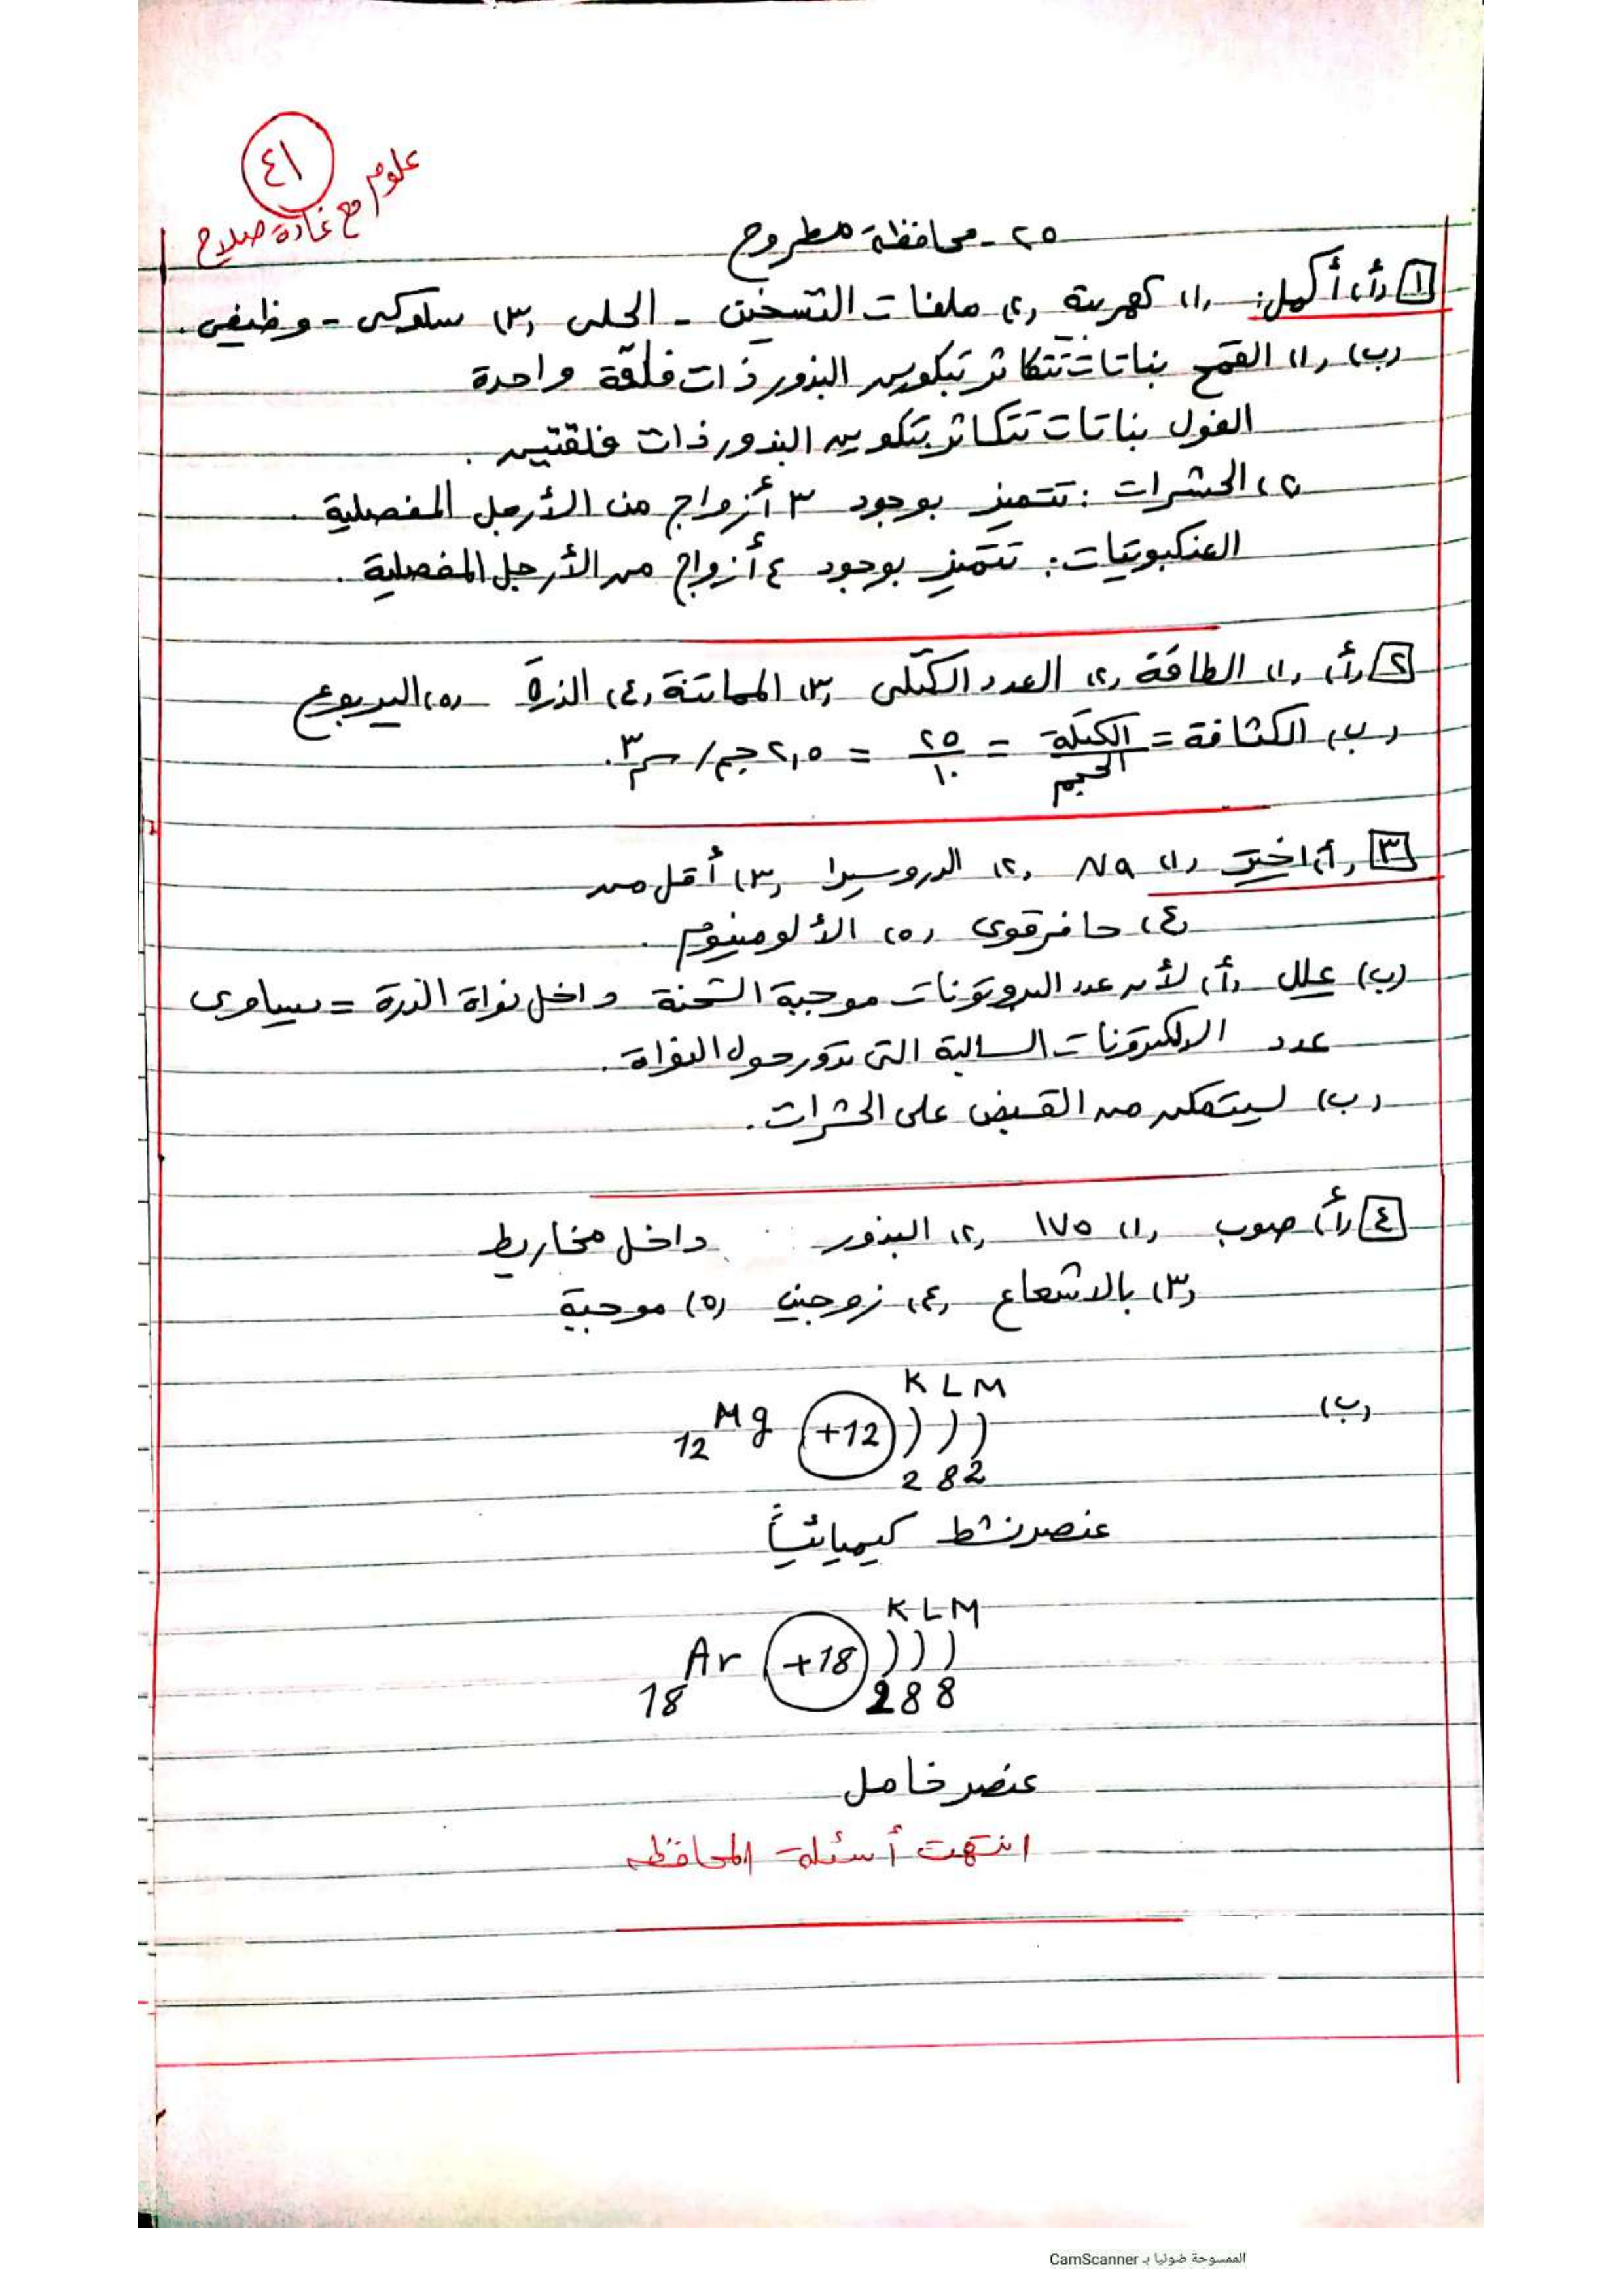 ٤١
علوم مع غادة صلاح
٢٥ - محافظة مطروح
١ (أ) أكمل: (١) كهربية (٢) ملفات التسخين - الحلى (٣) سلوكى - وظيفى.
(ب) (١) القمح نباتات تتكاثر بتكوين البذور ذات فلقة واحدة
الفول نباتات تتكاثر بتكوين البذور ذات فلقتين.
(٢) الحشرات: تتميز بوجود ٣ أزواج من الأرجل المفصلية.
العنكبوتيات: تتميز بوجود ٤ أزواج من الأرجل المفصلية.
٢ (أ) (١) الطاقة (٢) العدد الكتلى (٣) المماتنة (٤) الذرة (٥) اليربوع
(ب) الكثافة = الكتلة / الحجم = ٢٥ / ١٠ = ٢,٥ جم/سم٣.
٣ (أ) اختر (١) Na (٢) الدروسيرا (٣) أقل من
(٤) حافر قوى (٥) الألومنيوم.
(ب) علل (أ) لأن عدد البروتونات موجبة الشحنة داخل نواة الذرة = يساوى
عدد الإلكترونات السالبة التى تدور حول النواة.
(ب) ليتمكن من القبض على الحشرات.
٤ (أ) صوب (١) ١٧٥ (٢) البذور داخل مخاريط
(٣) بالاشعاع (٤) زوجين (٥) موجبة
K L M
(ب) 12 Mg +12 ) ) )
2 8 2
عنصر نشط كيميائياً
K L M
18 Ar +18 ) ) )
2 8 8
عنصر خامل
انتهت أسئلة المحافظه
الممسوحة ضوئيا بـ CamScanner